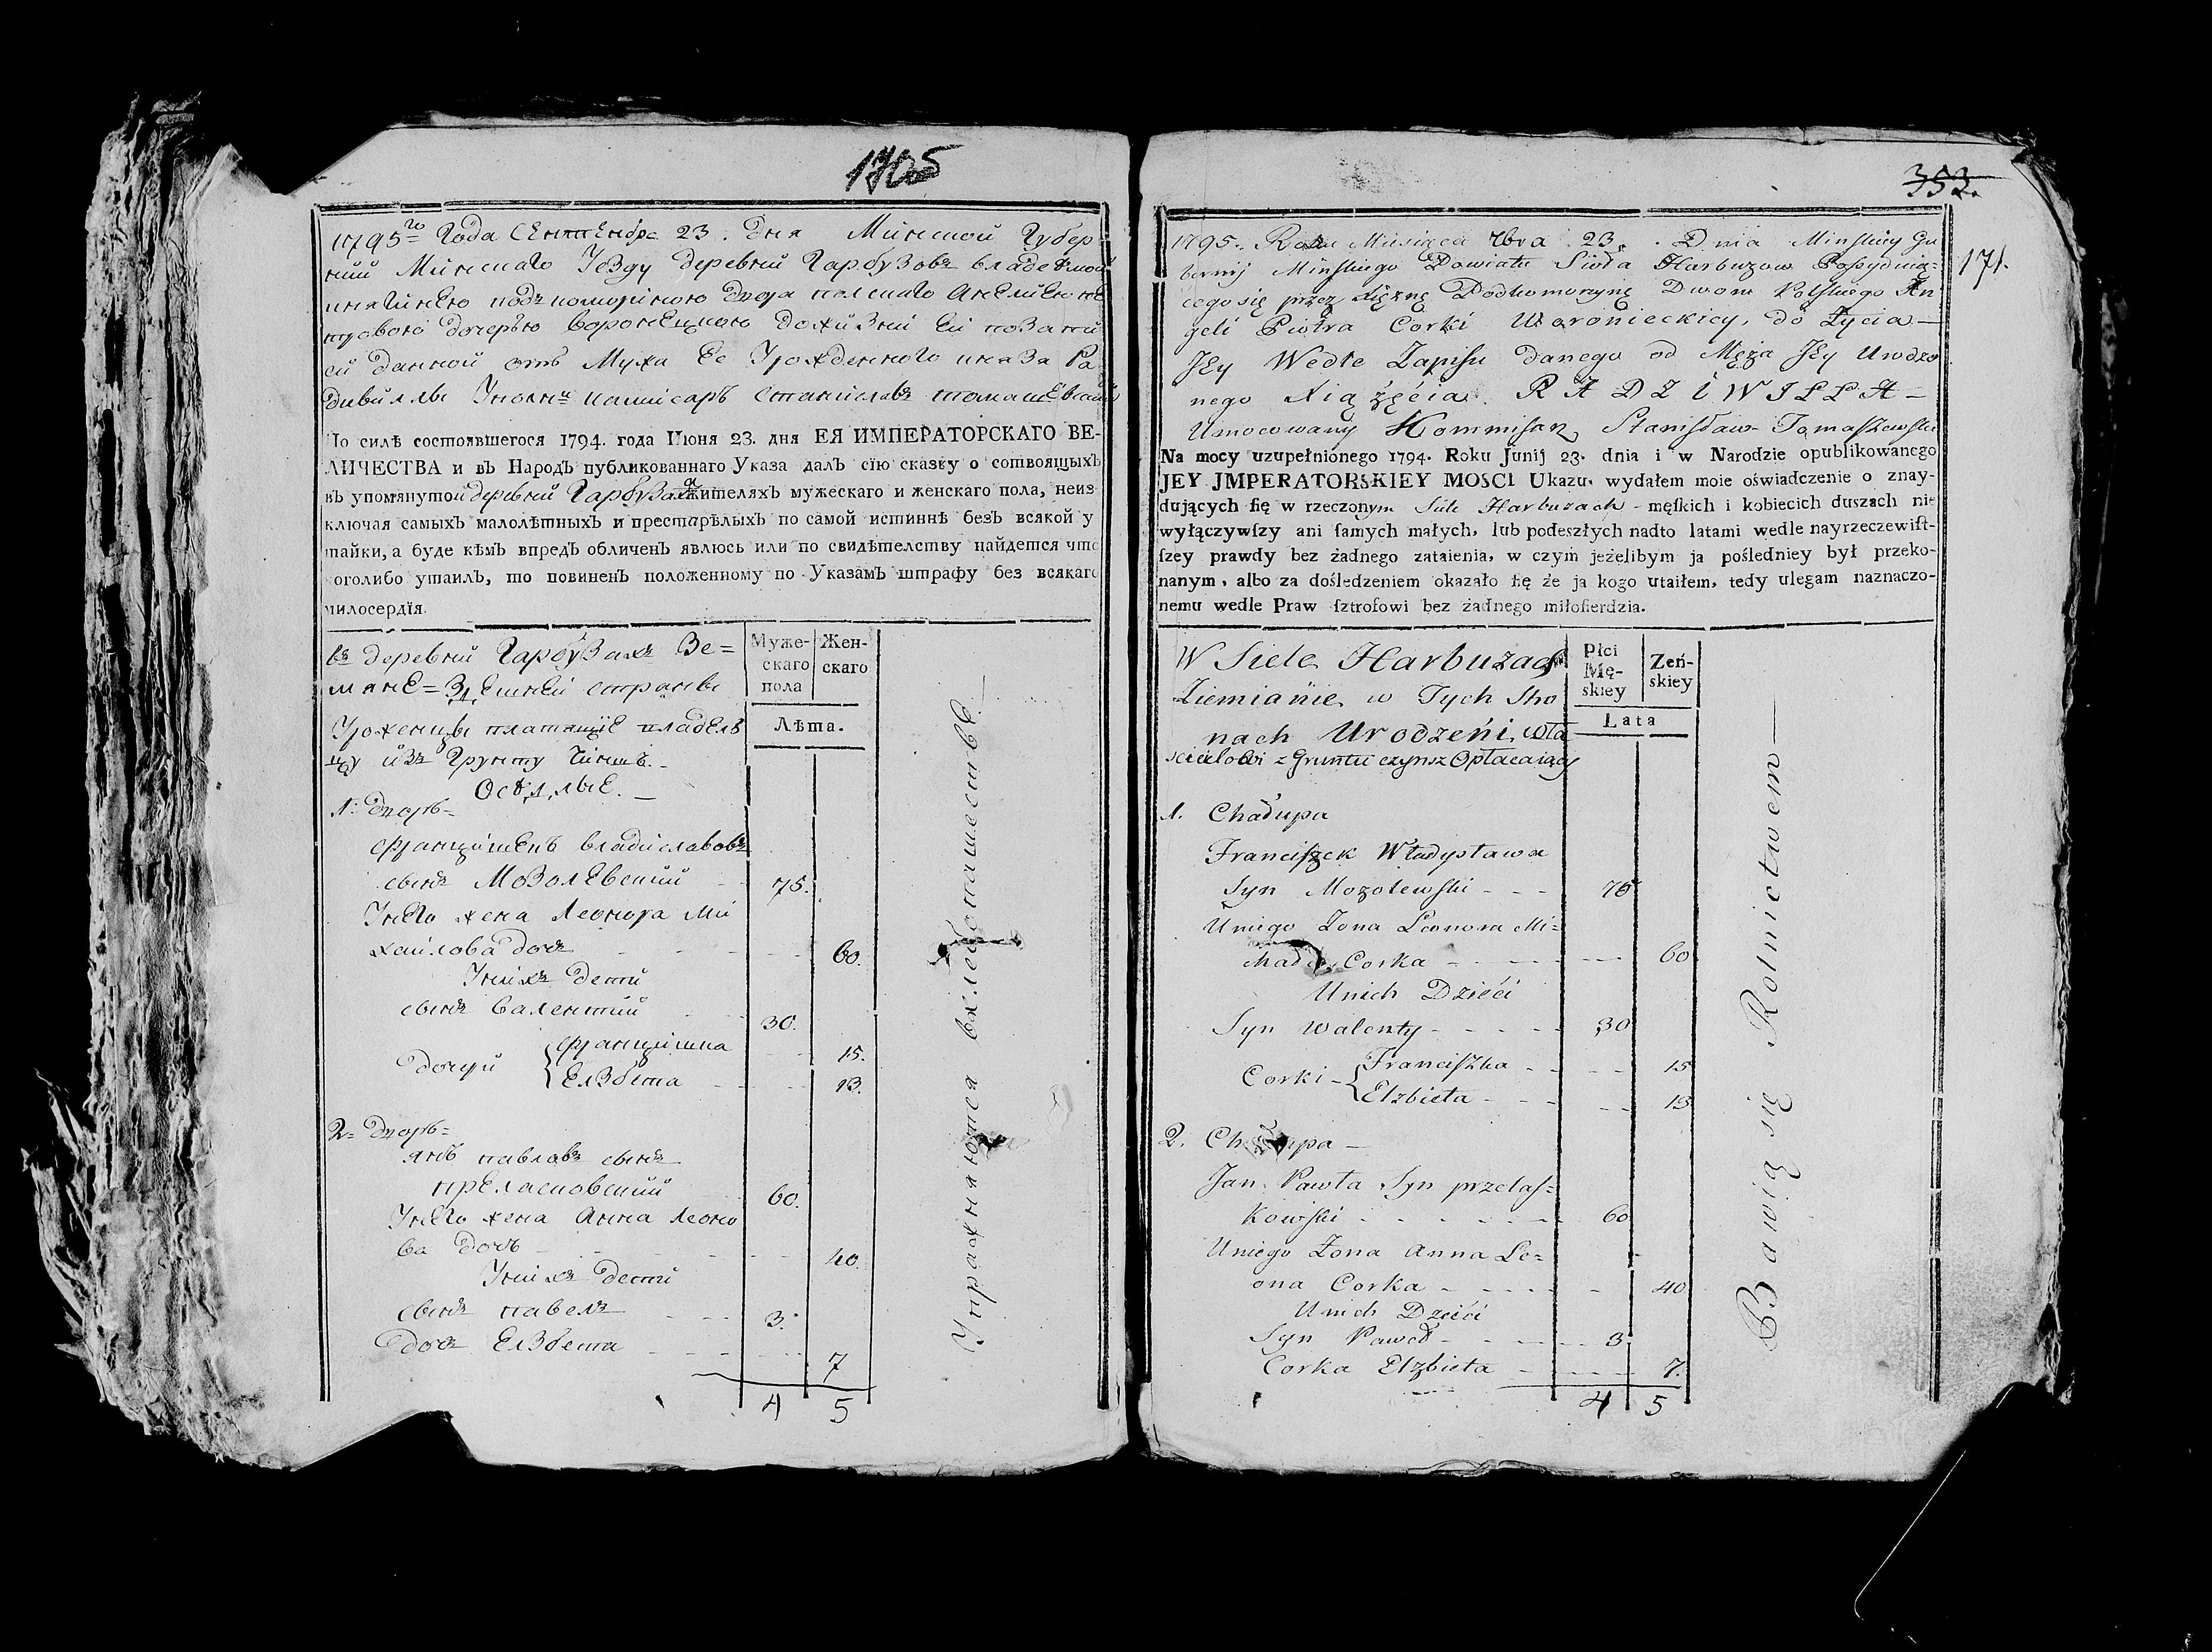 1705
1795го Года Сентебра 23. Дня Минской Губер
нии Минскаго Уезду деревни Гарбузовъ владеемой
княгинею подкомориною двора полскаго Анелиею пе
тровою дочерью воронецкою дожизни Ей по записи
ей данной отъ Мужа Ее Урожденного князя Ра
дивилы Уполн: комисаръ Станиславъ томашевский
По силѣ состоявшегося 1794. года Июня 23. дня ЕЯ ИМПЕРАТОРСКАГО ВЕ-
ЛИЧЕСТВА и въ Народъ публикованнаго Указа далъ сїю сказку о состоящыхъ
въ упомянутой деревни Гарбузахъ жителяхъ мужескаго и женскаго пола, неиз
ключая самыхъ малолѣтныхъ и престарѣлыхъ по самой истиннѣ безъ всякой у
тайки, а буде кѣмъ впредъ обличенъ явлюсь или по свидѣтелству найдется что
оголибо утаилъ, то повиненъ положенному по Указамъ штрафу без всякаго
милосердїя.
въ деревни Гарбузахъ Зе=
мяне = Здешней стране
Уроженцы платящие владель
цу изъ Грунту чиншъ.-
Оседлые. —
Муже-
скаго
пола
Жен-
скаго
Лѣта.
1: дворъ=
францишекъ владиславовъ
сынъ Мозолевский 75.
Унего жена Леонора Ми
хайлова дочь 60.
Унихъ дети
сынъ валентий 30.
дочери
францишка 15.
Елзбета 13.
2= дворъ=
янъ павловъ сынъ
преласковский 60.
Унего жена Анна Леоно
ва дочь 40.
Унихъ дети
сынъ павелъ 3.
дочь Елзбета 7
4 5
Упражняются вхлебопашестве.
353.
171.
1795. Roku Miesiąca 7bra 23. Dnia Minskiey Gu
bernij Minskiego Powiatu Sioła Harbuzow Possyduią=
cego się przez Xiężnę Podkomorzynę Dworu Polskiego An
geli Piotra Corki Woronieckiey, do Życia —
JEy Wedle Zapisu danego od Męża JEy Urodzo
nego Xiążęcia RADZIWIŁŁA —
Umocowany Kommisarz Stanisław Tomaszewski
Na mocy uzupełnionego 1794. Roku Junij 23. dnia i w Narodzie opublikowanego
JEY JMPERATORSKIEY MOSCI Ukazu, wydałem moie oświadczenie o znay-
duiących ſię w rzeczonym Siele Harbuzach - męſkich i kobiecich duszach nie
wyłączywſzy ani ſamych małych, lub podeszłych nadto latami wedle nayrzeczewiſt-
ſzey prawdy bez żadnego zataienia, w czym jeżelibym ja posledniey był przeko-
nanym, albo za doſledzeniem okazało ſię że ja kogo utaiłem, tedy ulegam naznaczo-
nemu wedle Praw ſztrofowi bez żadnego miłoſierdzia.
W Siele Harbuzach
Ziemianie w Tych Stro
nach Urodzeni, wła
scicielowi z Gruntu czynsz Opłacaiący
Płci
Mę-
skiey
Żeń-
skiey
Lata
1. Chałupa
Franciszek Władysława
Syn Mozolewski - - - 75
Uniego Żona Leonora Mi=
chała Corka - - - - 60
Unich Dzieci
Syn Walenty - - - - 30
Corki -
Franciszka - - - 15
Elzbieta - - - 13
2. Chałupa —
Jan Pawła Syn przelas=
kowski - - - - - 60
Uniego Żona Anna Le=
ona Corka - - - - 40
Unich Dzieci
Syn Paweł - - - 3.
Corka Elzbieta - - - 7.
4 5
Bawią się Rolnictwem —